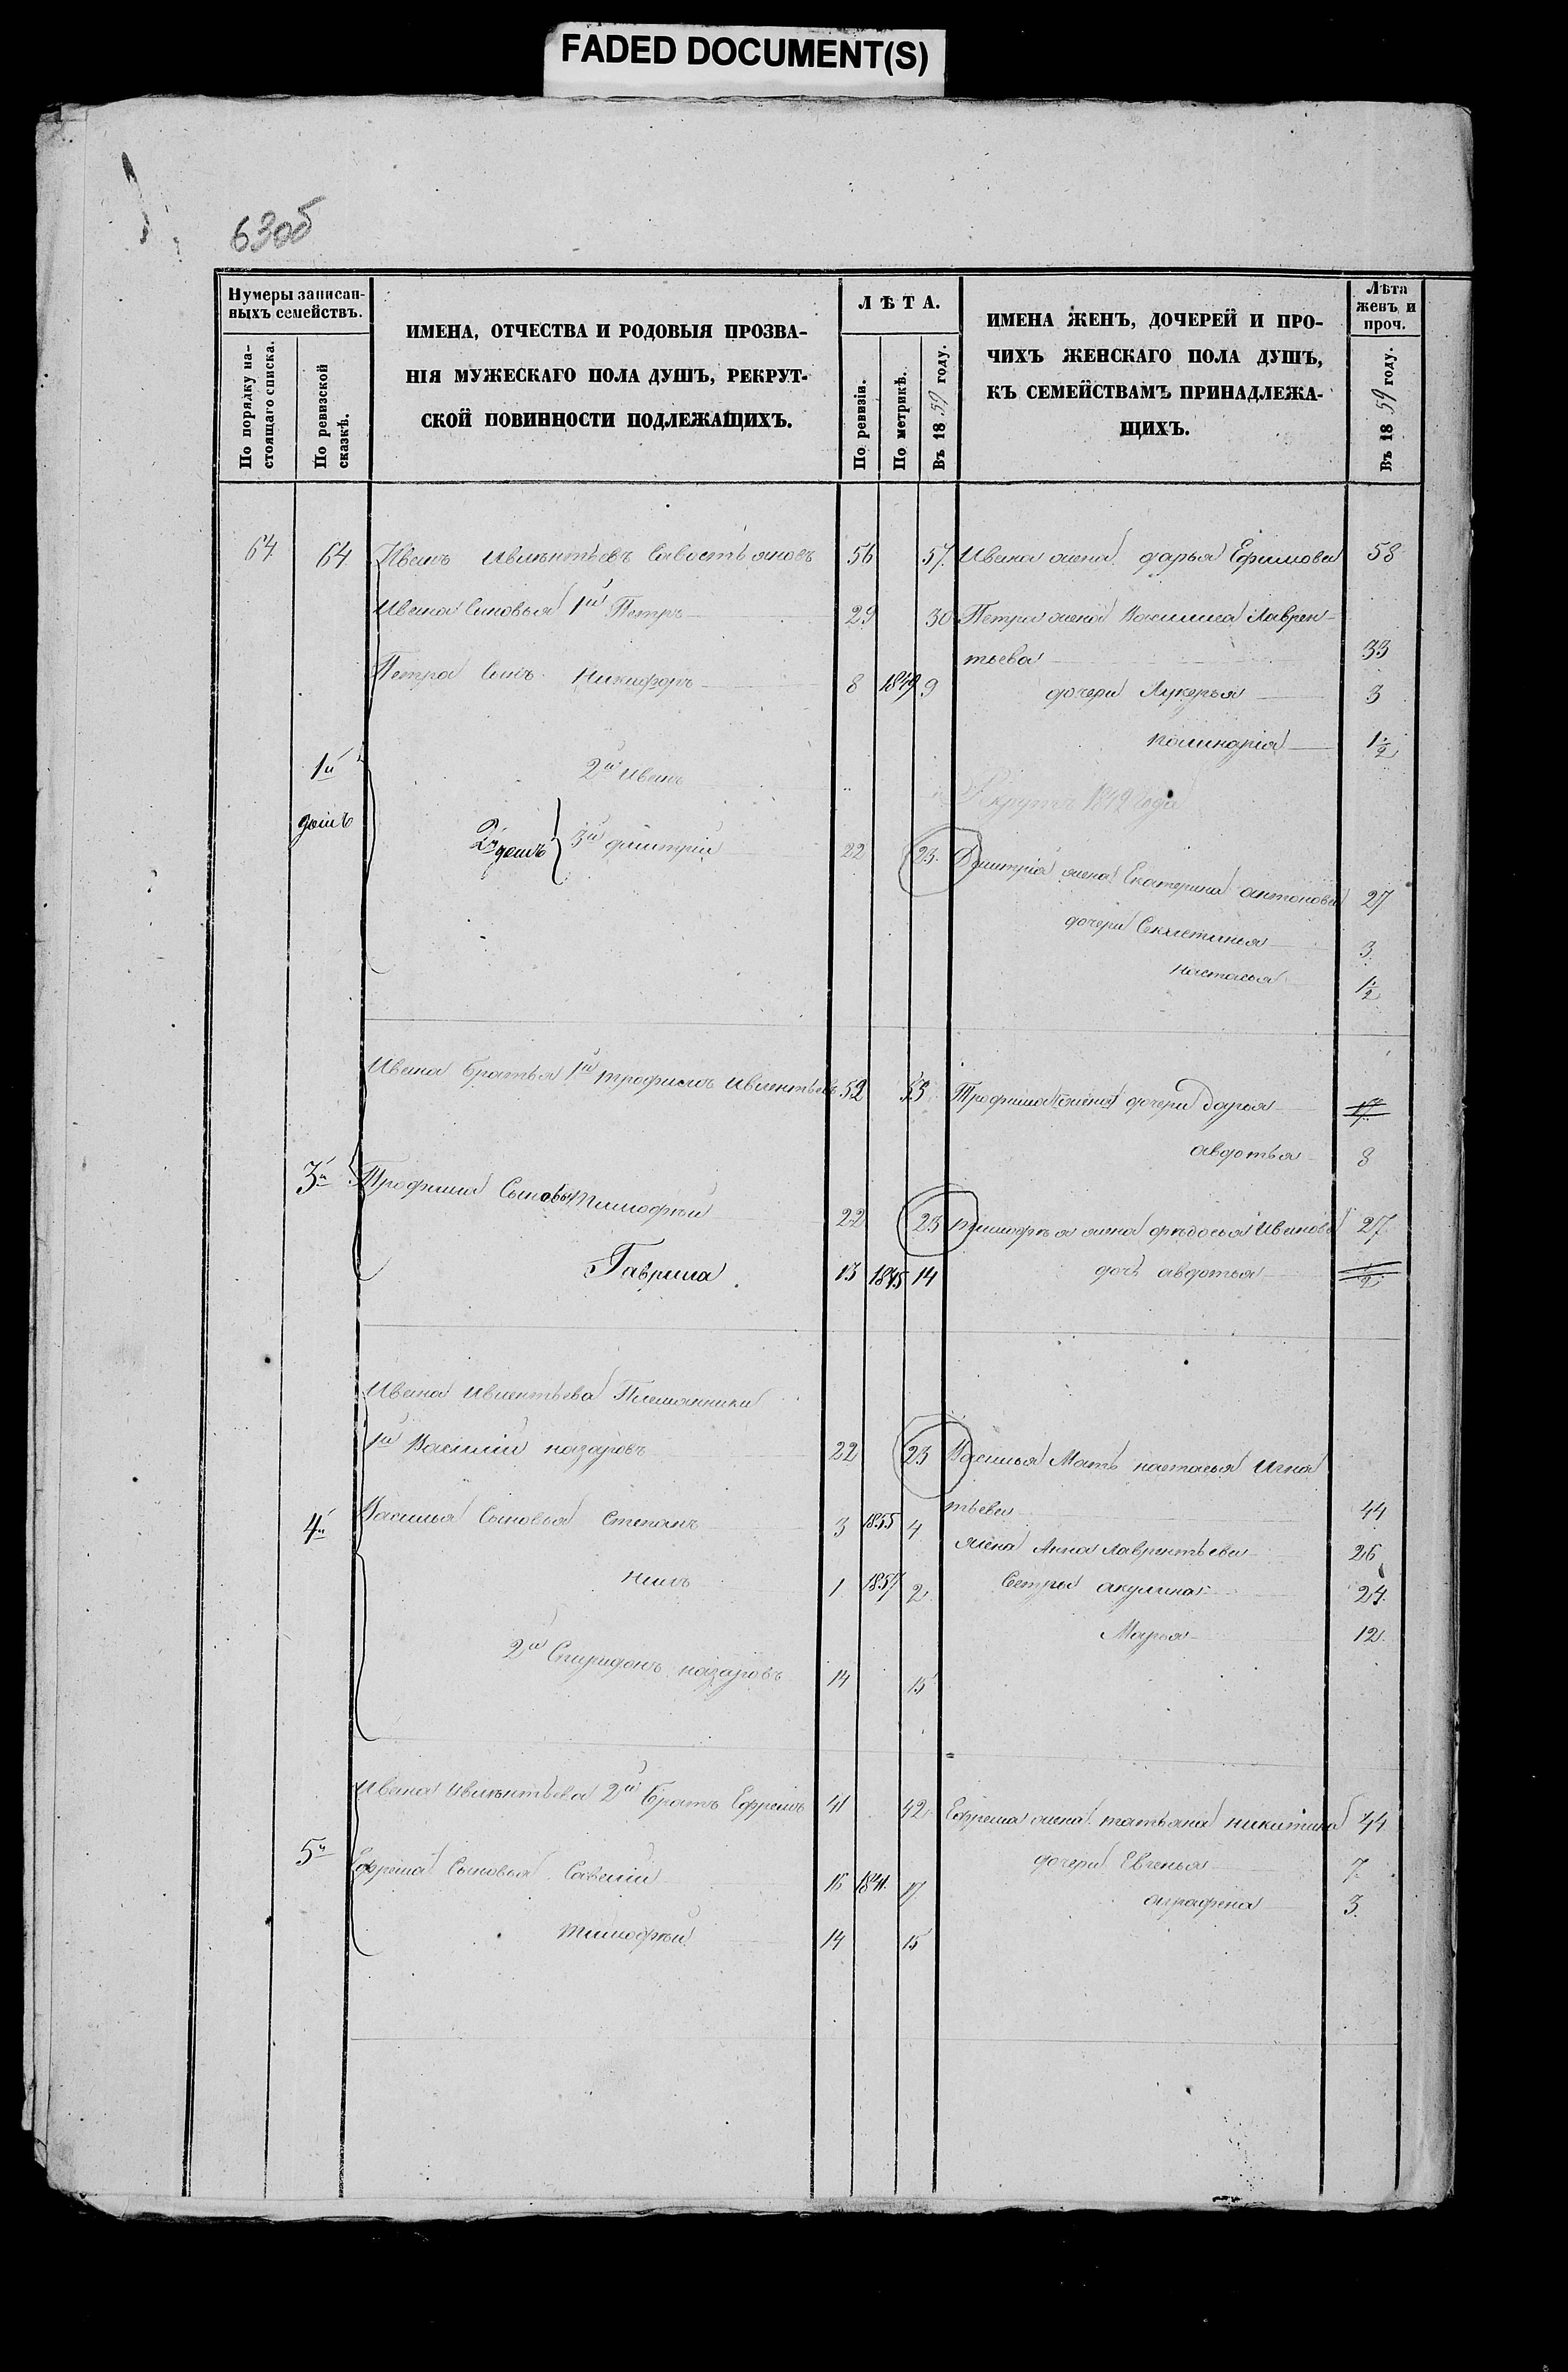 FADED DOCUMENT(S)
630б
Нумеры записан-
ныхъ семействъ.
По порядку на-
стоящаго списка.
По ревизской
сказкѣ.
ИМЕНА, ОТЧЕСТВА И РОДОВЫЯ ПРОЗВА-
НІЯ МУЖЕСКАГО ПОЛА ДУШЪ, РЕКРУТ-
СКОЙ ПОВИННОСТИ ПОДЛЕЖАЩИХЪ.
ЛѢТА.
По ревизіи.
По метрикѣ.
Въ 1859 году.
ИМЕНА ЖЕНЪ, ДОЧЕРЕЙ И ПРО-
ЧИХЪ ЖЕНСКАГО ПОЛА ДУШЪ,
КЪ СЕМЕЙСТВАМЪ ПРИНАДЛЕЖА-
ЩИХЪ.
Лѣта
женъ и
проч.
Въ 1859 году.
64 64 Иванъ Ивлѣнтьевъ Савостьяновъ 56 57. Ивана жена дарья Ефимова 58
Ивана Сыновья 1й Петръ 29 30 Петра жена Василиса Лаврен-
тьева 33
Петра Сынъ Никифоръ 8 1849 9 дочери Лукерья 3
1/2
1й 2й Иванъ Рекрутъ 1849 года
домъ
2й домъ 3й дмитрій 22 23. Дмитрія жена Екатерина антонова 27
дочери Секлетинья 3.
настасья 1/2
Ивана братья 1й трофимъ Ивлентьевъ 52 53 Трофима жена дочери Дарья 17
авдотья 8
3й Трофима Сыновья тимофѣй 22 23 тимофѣя жена фѣдосья Иванова 27.
Гаврила 13 1845 14 дочь авдотья 1/2
Ивана Ивлентьева Племянники
1й Василій назаровъ 22 23 Василья Мать настасья Игна
тьева 44
4й Василья Сыновья Степанъ 3 1855 4 жена Анна лаврентьева 26
нилъ 1 1857 2 Сестры акулина 24.
Марья 12.
2й Спиридонъ назаровъ 14 15
Ивана Ивлѣнтьева 2й братъ Ефремъ 41 42. Ефрема жена татьяна никитина 44
5й Ефрема Сыновья Савелій 16 1841. 17 дочери Евгенья 7.
аграфена 3.
тимофѣй 14 15